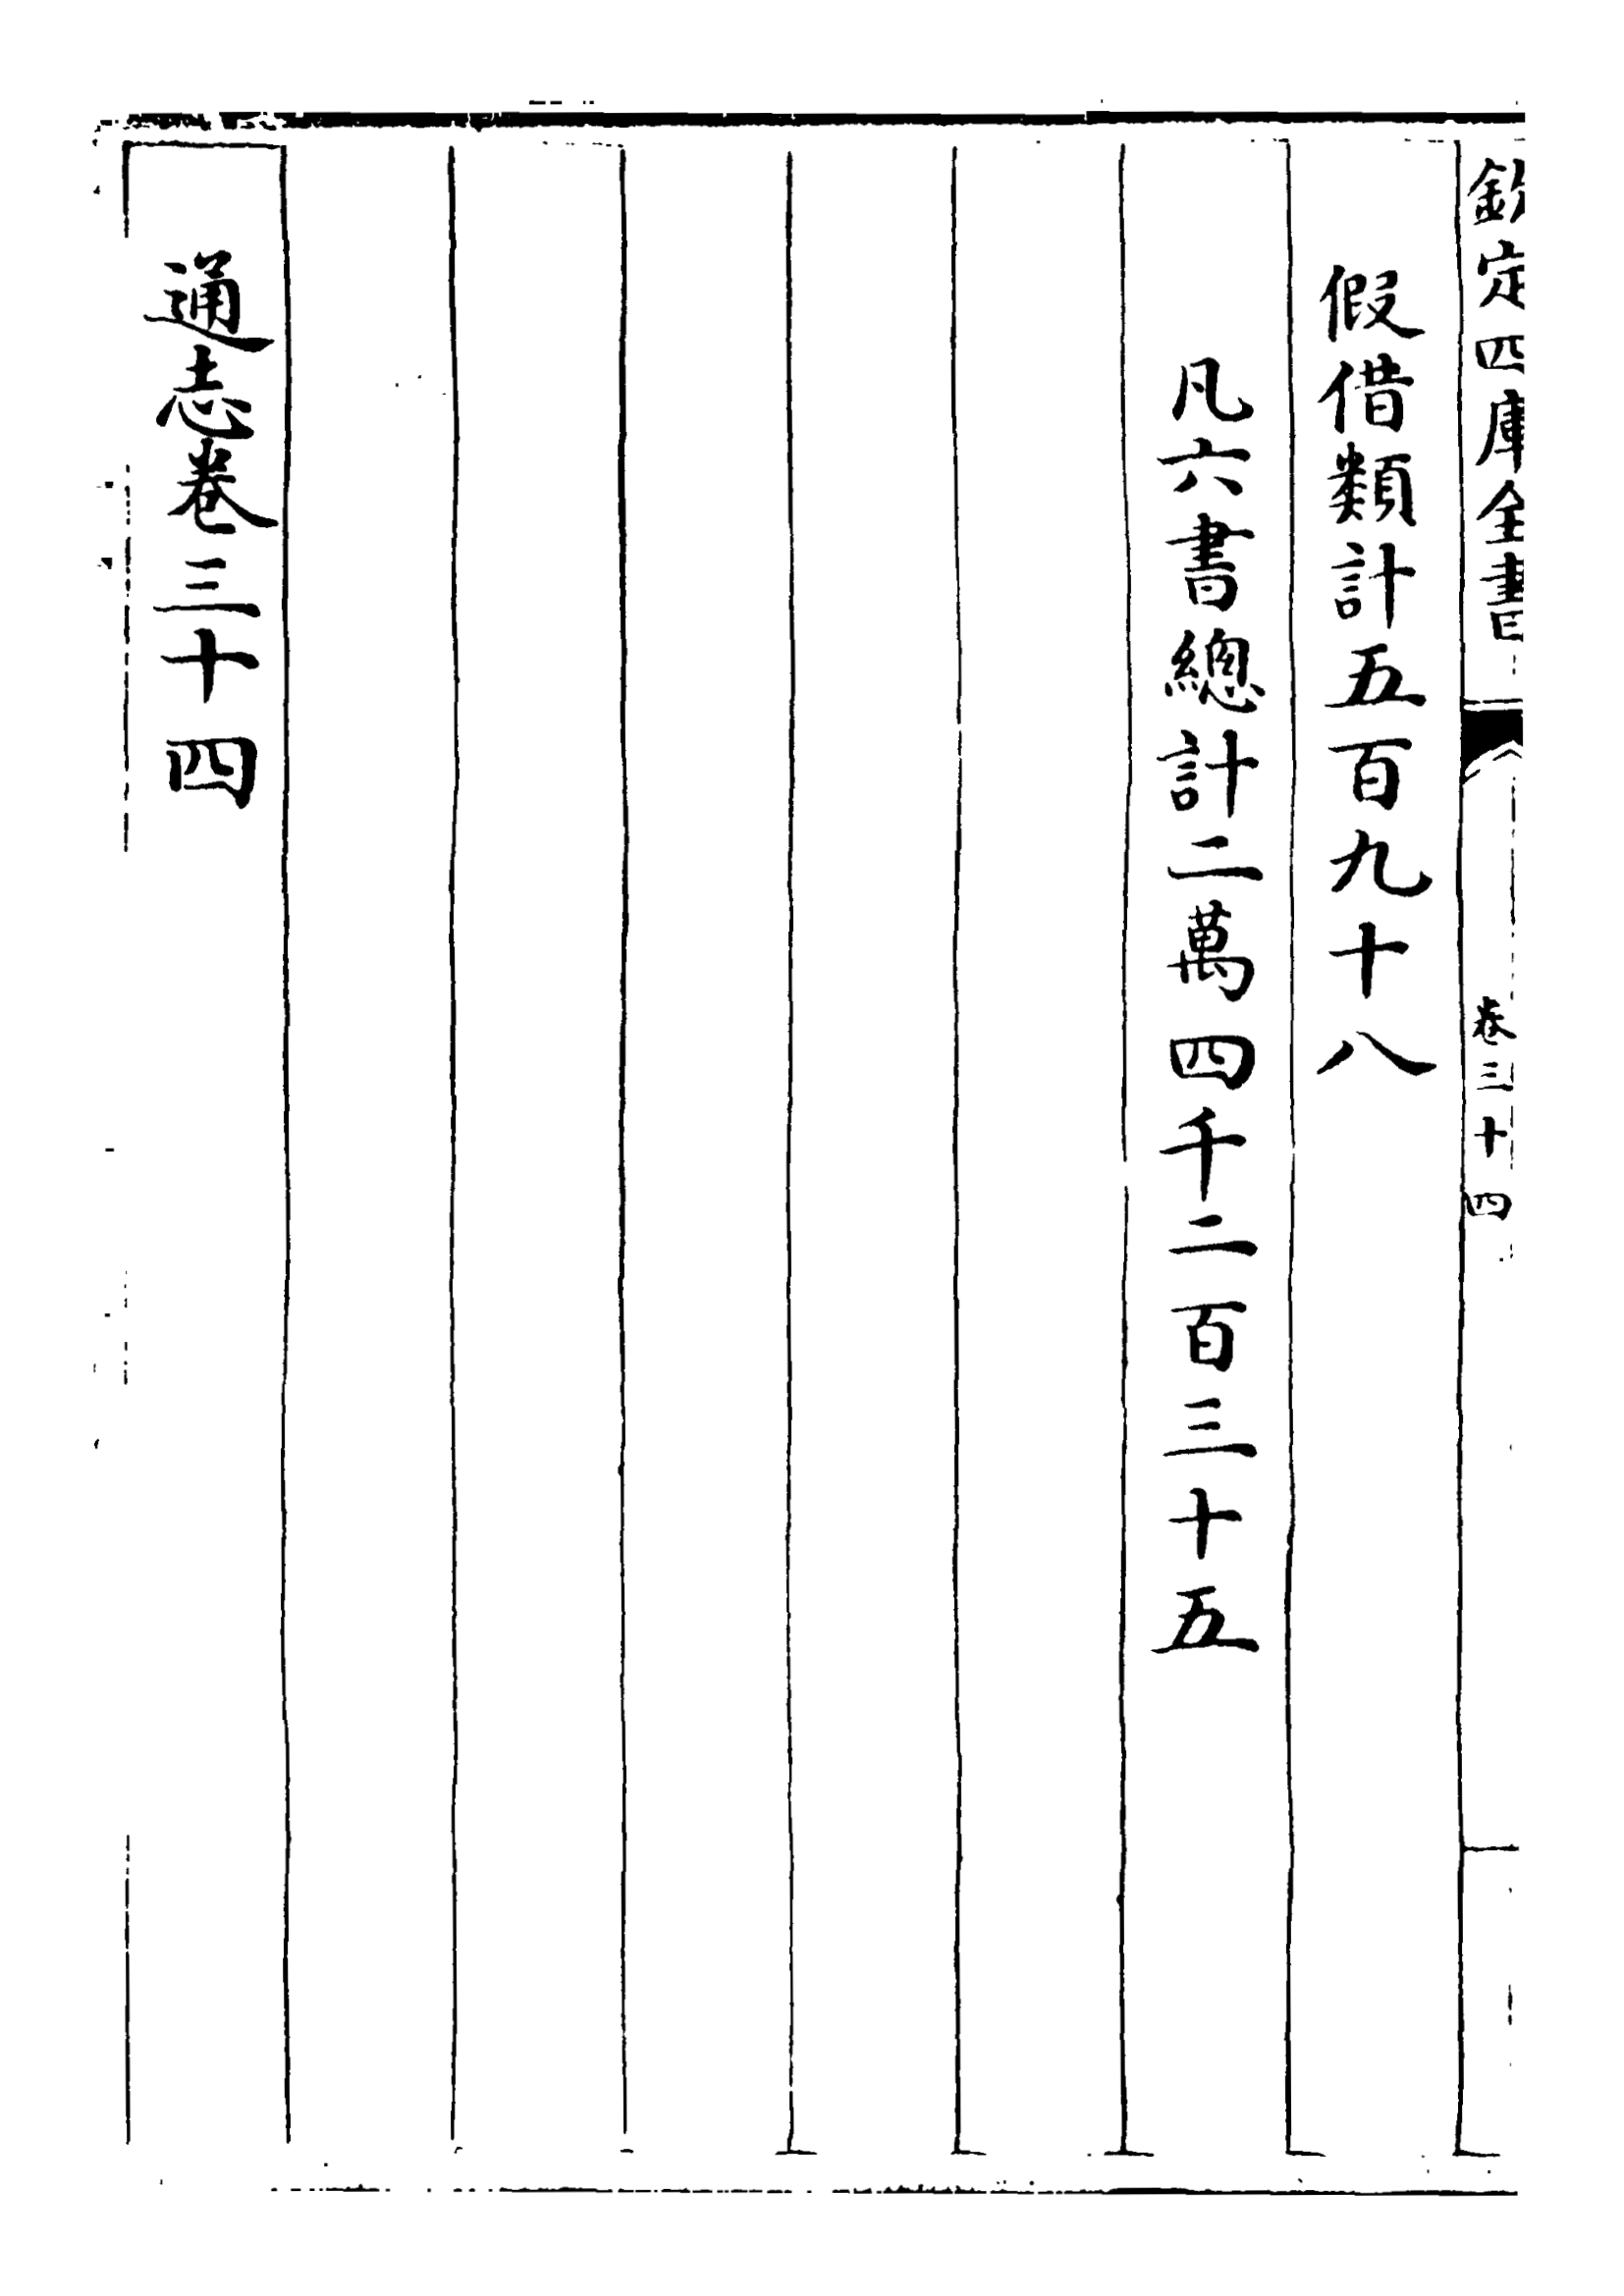 欽定四庫全書
卷三十四
假借類計五百九十八
凡六書總計二萬四千二百三十五
通志卷三十四